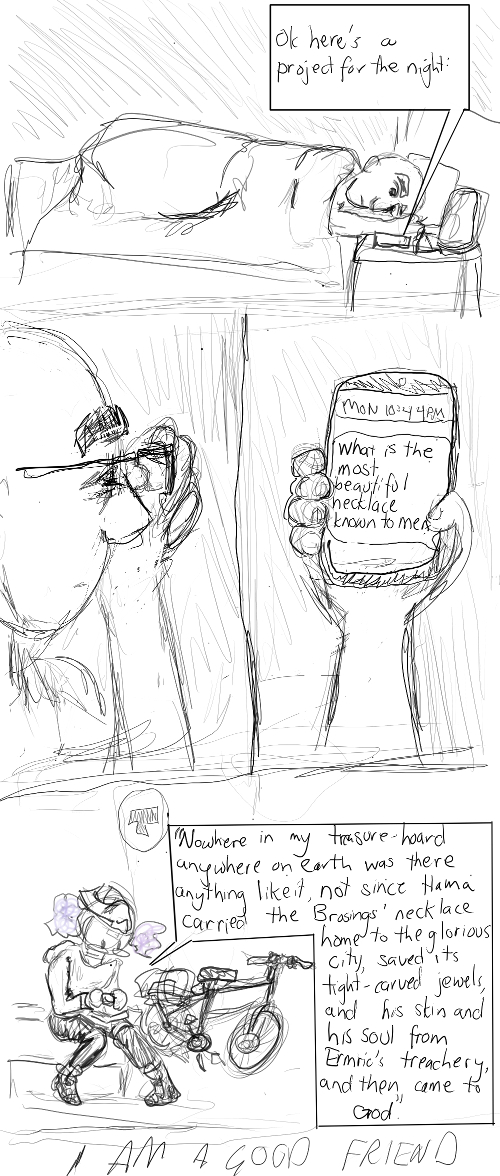 Ok here's a
project for the night:
MON 10:44PM
What is the
most
beautiful
necklace
known to men
"Nowhere in my treasure-hoard
anywhere on earth was there
anything like it, not since Hama
carried the Brosings' necklace
home to the glorious
city, saved its
tight-carved jewels,
and his skin and
his soul from
Ermric's treachery,
and then came to
God."
I AM A GOOD FRIEND